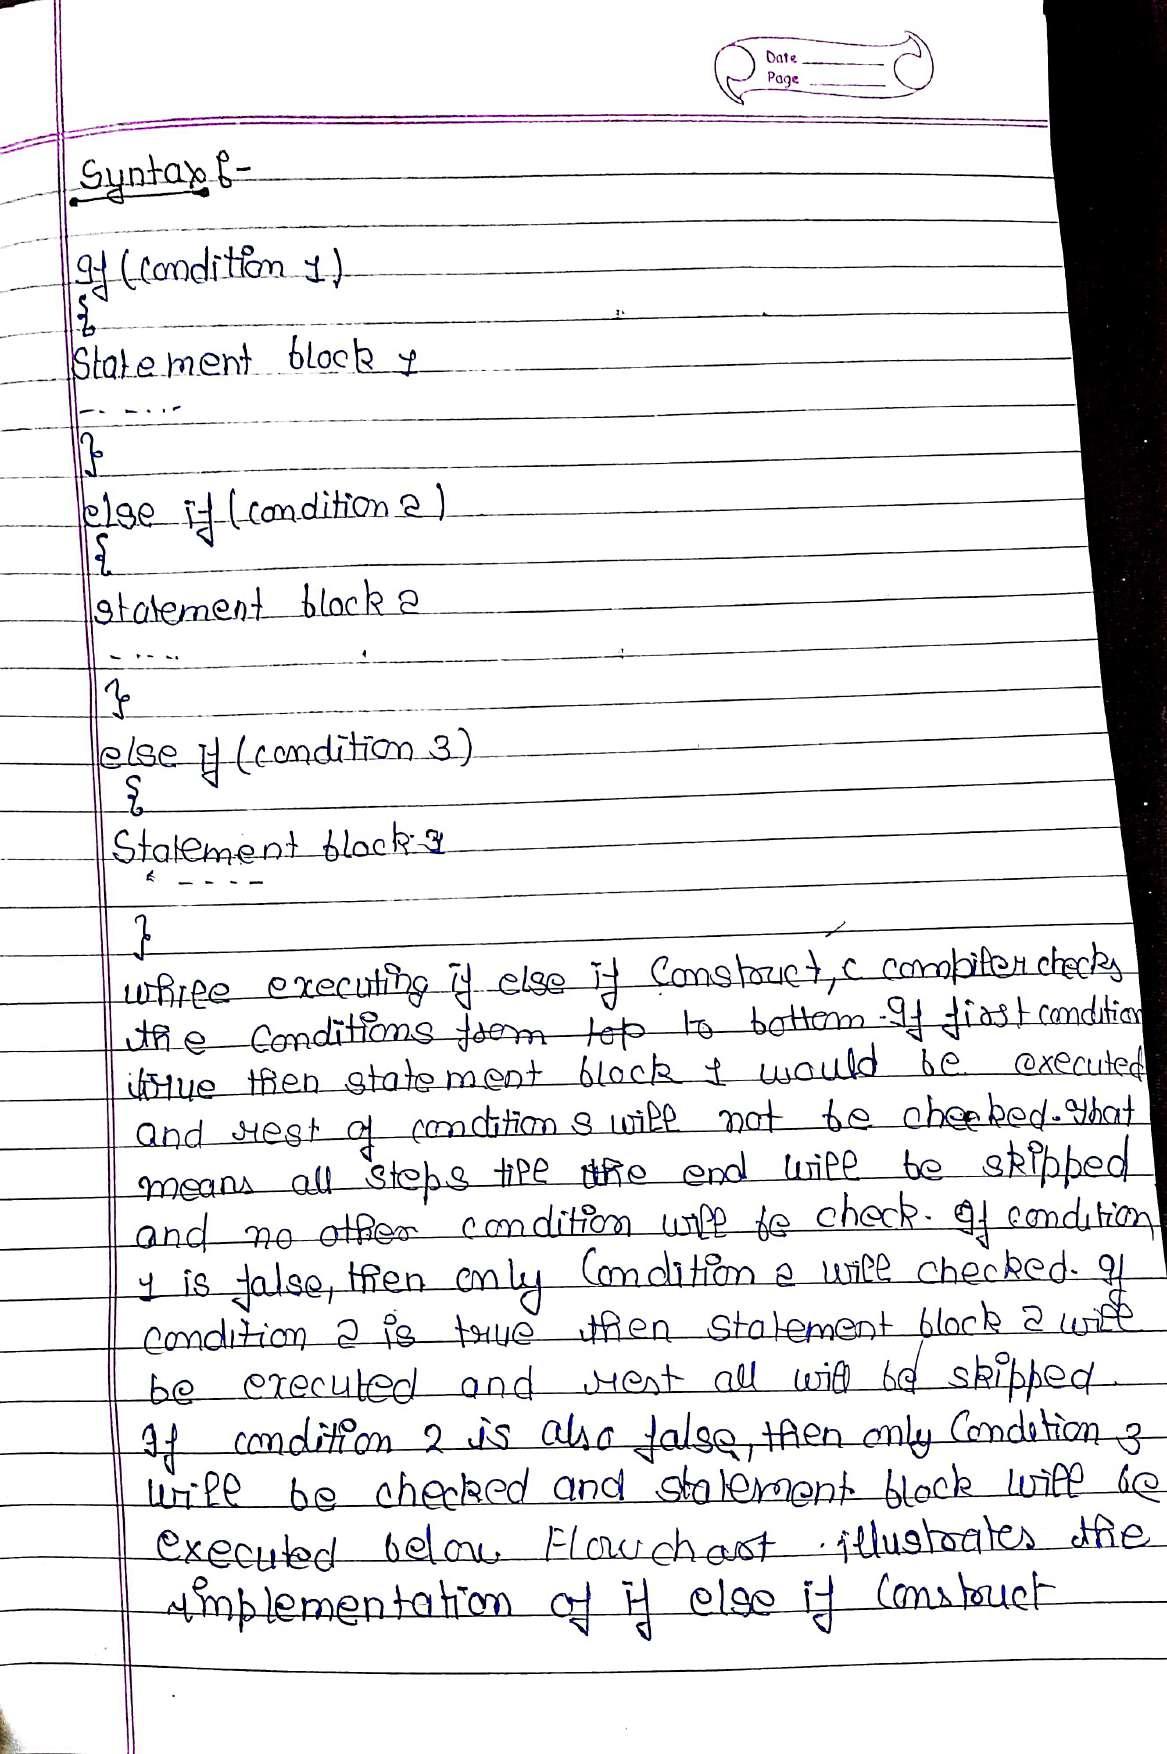 Date
Page
Syntax :-
If (condition 1)
{
Statement block 1
- - - - -
}
else if (condition 2)
{
statement block 2
- - - - -
}
else if (condition 3)
{
Statement block
- - - -
}
while executing if else if Construct, c compiler checks
the Conditions from top to bottom. If first condition
true then statement block 1 would be executed
and rest of conditions will not be checked. That
means all steps till the end will be skipped
and no other condition will be check. If condition
1 is false, then only Condition 2 will checked. If
condition 2 is true then statement block 2 will
be executed and rest all will be skipped.
If condition 2 is also false, then only Condition 3
will be checked and statement block will be
executed below Flowchart illustrates the
implementation of if else if Construct